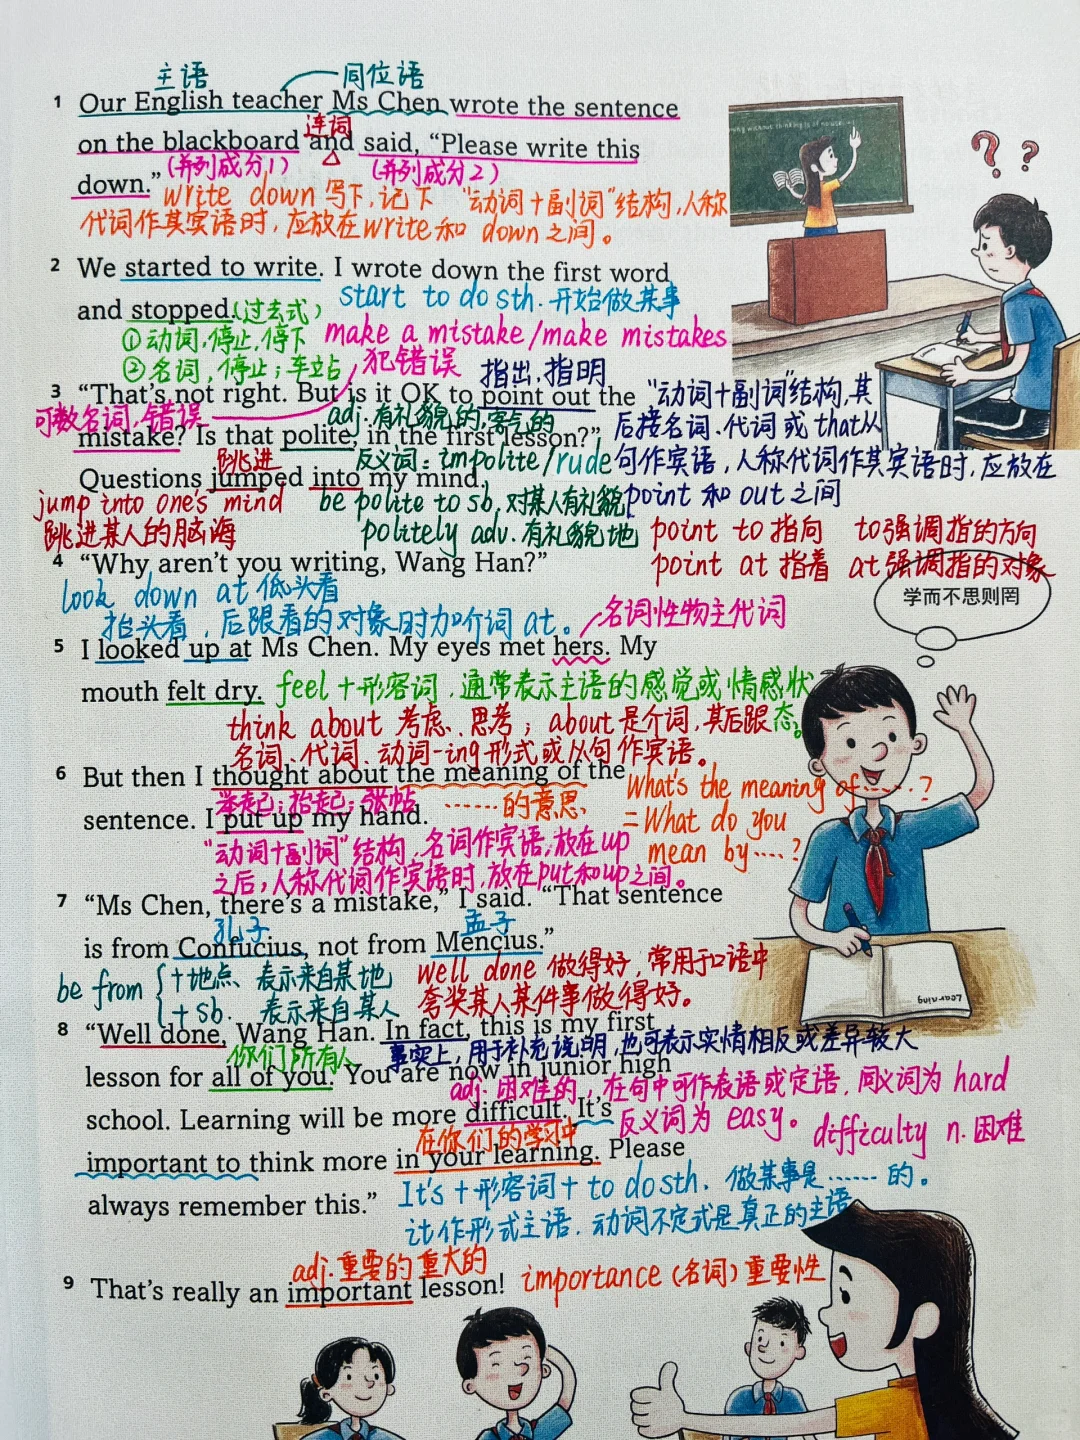 主语 同位语
1 Our English teacher Ms Chen wrote the sentence
连词
on the blackboard and said, “Please write this
(并列成分1) (并列成分2)
down.” write down 写下,记下 “动词+副词”结构,人称
代词作其宾语时,应放在write和 down之间。
2 We started to write. I wrote down the first word
and stopped. (过去式) start to do sth. 开始做某事
①动词,停止,停下 make a mistake/make mistakes
②名词,停止;车站 犯错误 指出,指明
3 “That's not right. But is it OK to point out the “动词+副词”结构,其
可数名词,错误 adj.有礼貌的,客气的
mistake? Is that polite, in the first lesson?” 后接名词、代词或that从
跳进 反义词:impolite/rude 句作宾语,人称代词作其宾语时,应放在
Questions jumped into my mind.
jump into one's mind be polite to sb. 对某人有礼貌 point 和 out 之间
跳进某人的脑海 politely adv.有礼貌地 point to 指向 to强调指的方向
4 “Why aren't you writing, Wang Han?” point at 指着 at强调指的对象
学而不思则罔
look down at 低头看
抬头看,后跟看的对象时加介词 at。 名词性物主代词
5 I looked up at Ms Chen. My eyes met hers. My
mouth felt dry. feel+形容词,通常表示主语的感觉或情感状
态。
think about 考虑、思考;about是介词,其后跟
名词、代词、动词-ing形式或从句作宾语。
6 But then I thought about the meaning of the What's the meaning of ……?
举起;抬起;张帖 ……的意思
sentence. I put up my hand. =What do you
“动词+副词”结构,名词作宾语,放在up mean by……?
之后,人称代词作宾语时,放在put和up之间。
7 “Ms Chen, there's a mistake,” I said. “That sentence
孔子 孟子
is from Confucius, not from Mencius.”
be from +地点、表示来自某地 well done 做得好,常用于口语中
+sb. 表示来自某人 夸奖某人某件事做得好。
Learning
8 “Well done, Wang Han. In fact, this is my first
你们所有人 事实上,用于补充说明,也可表示实情相反或差异较大
lesson for all of you. You are now in junior high
adj.困难的,在句中可作表语或定语,同义词为 hard
school. Learning will be more difficult. It's 反义词为 easy。 difficulty n.困难
在你们的学习中
important to think more in your learning. Please
always remember this.” It's+形容词+to do sth. 做某事是……的。
it作形式主语,动词不定式是真正的主语
adj.重要的 重大的
9 That's really an important lesson! importance (名词) 重要性